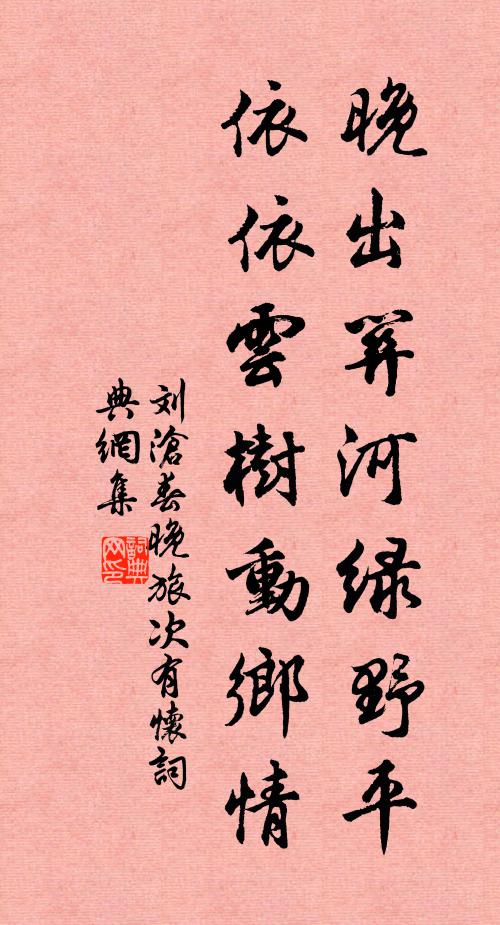 晚出關河绿野平
依依雲樹動鄉情
刘滄春晚旅次有懷詞
典網集
詞典网印